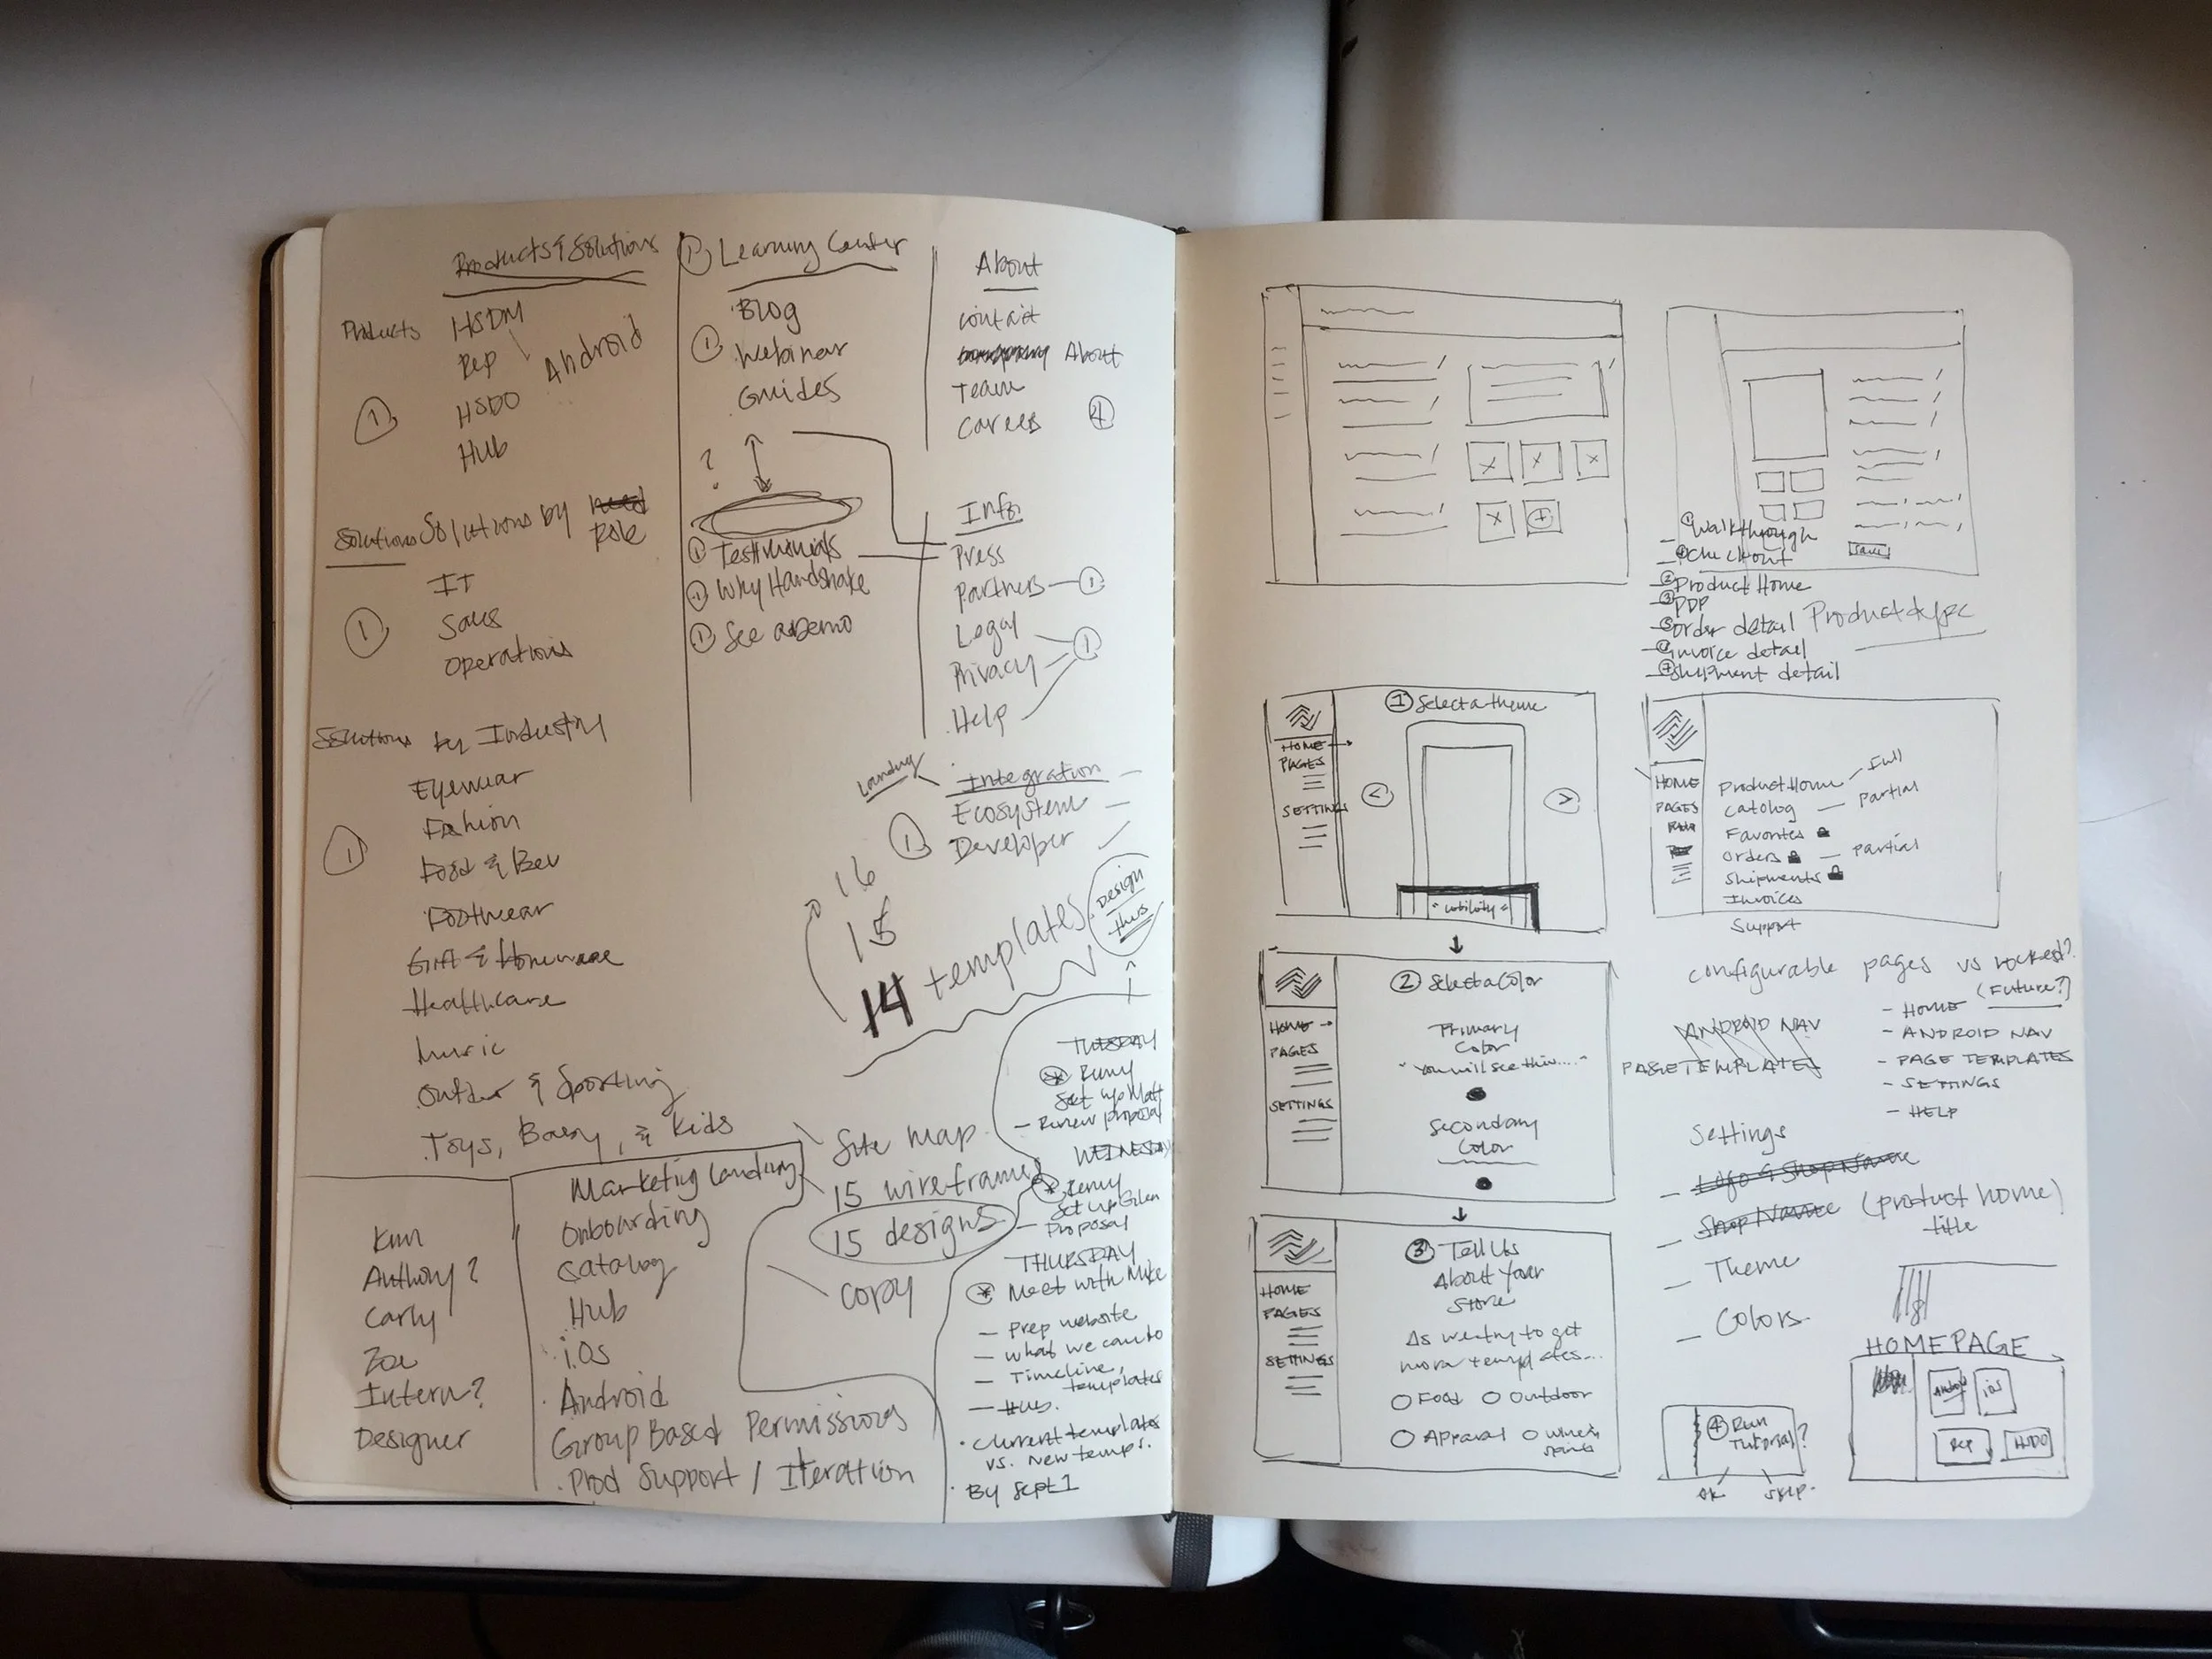 Products & Solutions
Products
HSDM
Rep
Android
HSDO
Hub
1
Solutions Solutions by need
Role
IT
Sales
Operations
1
Solutions by Industry
Eyewear
Fashion
Food & Bev
Footwear
Gift & Homeware
Healthcare
Music
Outdoor & Sporting
Toys, Baby, & Kids
1
1 Learning Center
Blog
Webinar
Guides
1
?
1 Testimonials
1 Why Handshake
1 See a Demo
About
Contact
About
Team
Careers
4
Info
Press
Partners 1
Legal
Privacy 1
Help
Landing
Integration
Ecosystem
Developer
1
16
15
14 templates
Design this
Site map
15 wireframes
15 designs
copy
Kim
Anthony?
Carly
Zoe
Intern?
Designer
Marketing Landing
Onboarding
Catalog
Hub
iOS
Android
Group Based Permissions
Prod Support / Iteration
TUESDAY
Set up Matt
Review proposal
WEDNESDAY
Set up Glen
Proposal
THURSDAY
Meet with Mike
- Prep website
- What we can do
- Timeline,
templates
- Hub.
Current templates
vs. New temps.
By Sept 1
1 Walkthrough
Checkout
2 Product Home
3 PDP
Order detail
Invoice detail
Shipment detail
Product type
Save
1 Select a theme
HOME
PAGES
SETTINGS
<
>
HOME
PAGES
Product Home - Full
Catolog - Partial
Favorites
Orders - Partial
Shipments
Invoices
Support
2 Select a Color
HOME
PAGES
SETTINGS
Primary
Color
"You will see this....."
Secondary
Color
Configurable pages vs locked?
(Future?)
ANDROID NAV
PAGE TEMPLATES
- HOME
- ANDROID NAV
- PAGE TEMPLATES
- SETTINGS
- HELP
Settings
- Logo & Shop Name
- Shop Name (product home)
title
- Theme
- Colors
3 Tell Us
About Your
Store
HOME
PAGES
SETTINGS
As we try to get
more templates...
Food
Outdoor
Apparal
Wine &
Spirits
4 Run
Tutorial?
OK
SKIP
HOMEPAGE
Android
iOS
Rep
HSDO